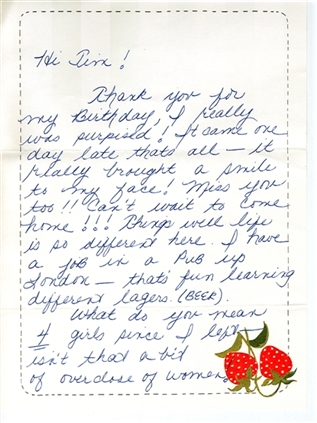 Hi Tim!
Thank you for
my Birthday, I really
was surpised! It came one
day late thats all — it
really brought a smile
to my face! Miss you
too!! Can't wait to come
home!!! Things well life
is so different here. I have
a job in a Pub up
London — that's fun learning
different lagers. (BEER).
What do you mean
4 girls since I left —
isn't that a bit
of overdose of women